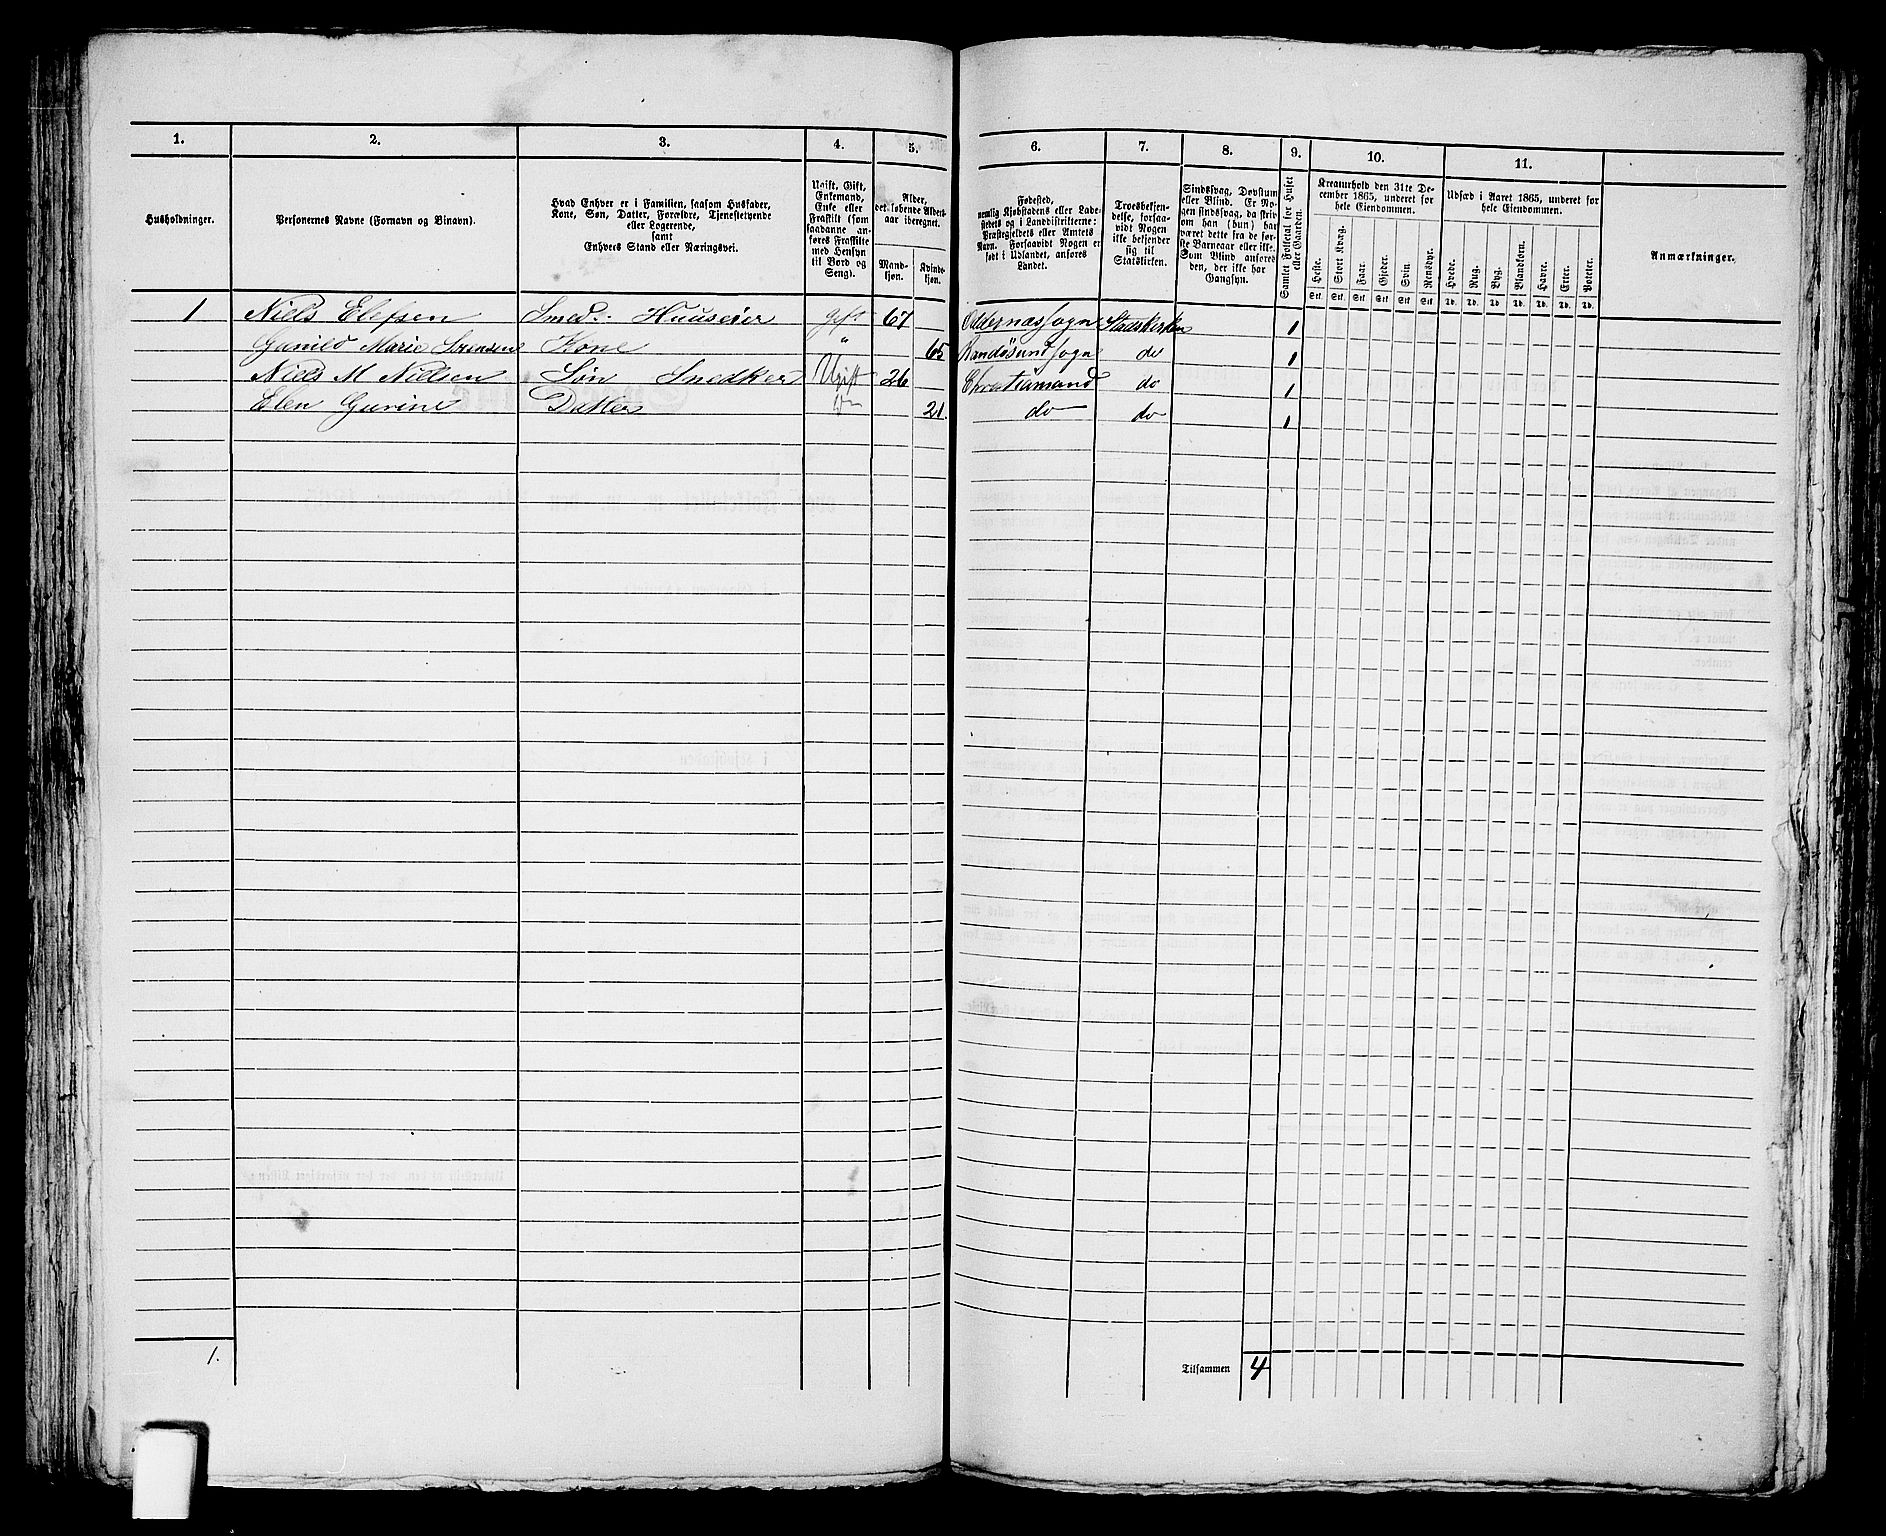 1. 2. 3. 4. 5. 6. 7. 8. 9. 10. 11.
Husholdninger.
Personernes Navne (Fornavn og Binavn).
Hvad Enhver er i Familien, saasom Husfader,
Kone, Søn, Datter, Forældre, Tjenestetyende
eller Logerende,
samt
Enhvers Stand eller Næringsvei.
Ugift, Gift,
Enkemand,
Enke eller
Fraskilt (som
saadanne an-
føres Fraskilte
med Hensyn
til Bord og
Seng).
Alder,
det løbende Alders-
aar iberegnet.
Mand-
kjøn.
Kvinde-
kjøn.
Fødested,
nemlig Kjøbstadens eller Lade-
stedets og i Landdistrikterne:
Præstegjeldets eller Amtets
Navn. Forsaavidt Nogen er
født i Udlandet, anføres
Landet.
Troesbekjen-
delse, forsaa-
vidt Nogen
ikke bekjender
sig til
Statskirken.
Sindssvag, Døvstum
eller Blind. Er No-
gen sindssvag, da skriv
han (hun) har
været dette fra de før-
ste Barneaar eller ikke.
Som Blind anføres
den, der ikke har
Gangsyn.
Samlet Folketal for Huset
eller Gaarden.
Kreaturhold den 31te De-
cember 1865, underet for
hele Eiendommen.
Heste. Stort Kvæg. Faar. Gjeder. Svin. Rensdyr.
Stk. Stk. Stk. Stk. Stk. Stk.
Udsæd i Aaret 1865, underet for
hele Eiendommen.
Hvede. Rug. Byg. Blandkorn. Havre. Erter. Poteter.
Td. Td. Td. Td. Td. Td. Td.
Anmærkninger.
1 Niels Elefsen Smed. Huuseier gift 67 Oddernæs sogn Stadskirken 1
Marie Sørensen Kone " 65 Randøsund sogn do 1
Niels M Nielsen Søn Snedker Ugift 26 Christiansand do 1
Elen Gurine Datter 21. do do 1
1.
Tilsammen 4